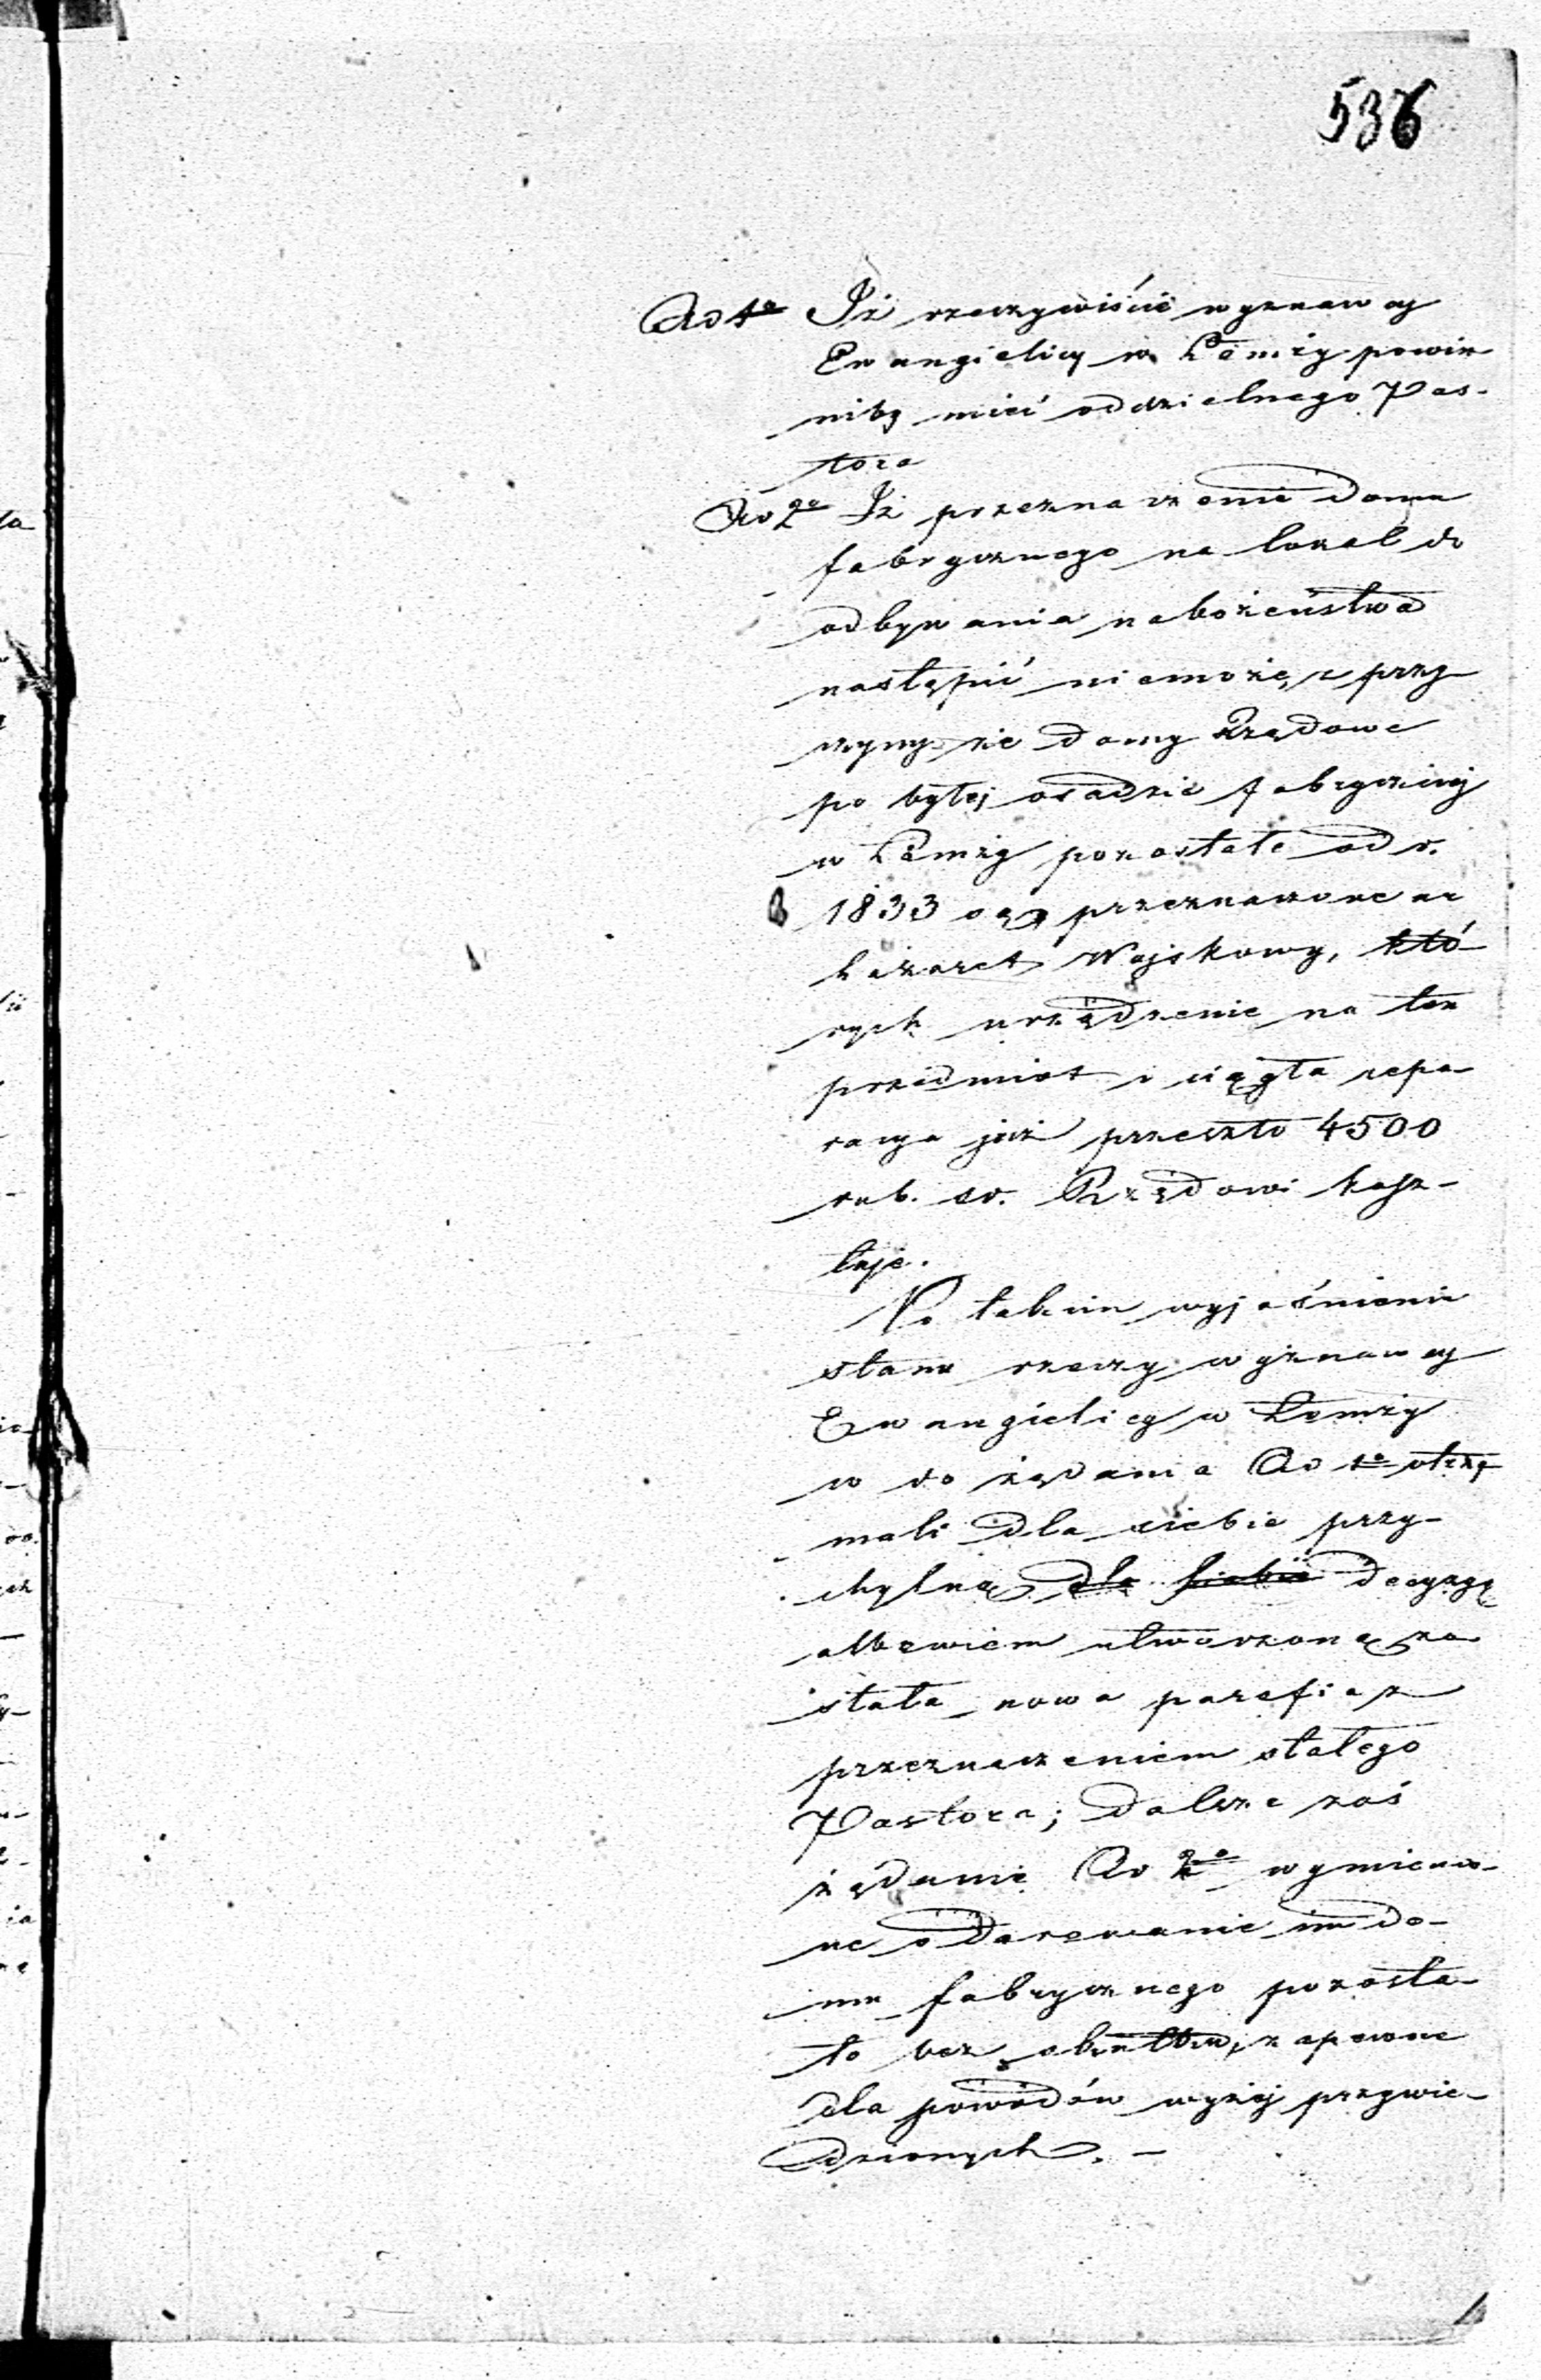 536
Ad 1o Iż rzeczywiście wyznawcy
Ewangielicy w Łomży powin
niby mieć oddzielnego Pas-
tora
Ad 2o Iż przeznaczenie domu
fabrycznego na lokal do
odbywania nabożeństwa
nastąpić niemoże, z przy
czyny że domy Rządowe
po byłej osadzie fabrycznej
w Łomży pozostałe od r.
1833 są przeznaczone na
Lazaret Wojskowy, któ-
rych urządzenie na ten
przedmiot i ciągła repa-
racya już przeszło 4500
rub. sr. Rządowi kosz-
tuje.
Po takim wyjaśnieniu
stanu rzeczy wyznawcy
Ewangielicy w Łomży
w do żądania Ad 1o otrzy
mali dla siebie przy-
chylną dla siebie decyzyą
albowiem utworzoną zo
stała nowa parafia z
przeznaczeniem stałego
Pastora; dalsze zaś
żądanie Ad 2o wymienio-
ne o darowanie im do-
mu fabrycznego pozosta-
ło bez skutku, zapewne
dla powodów wyżej przywie-
dzionych. -